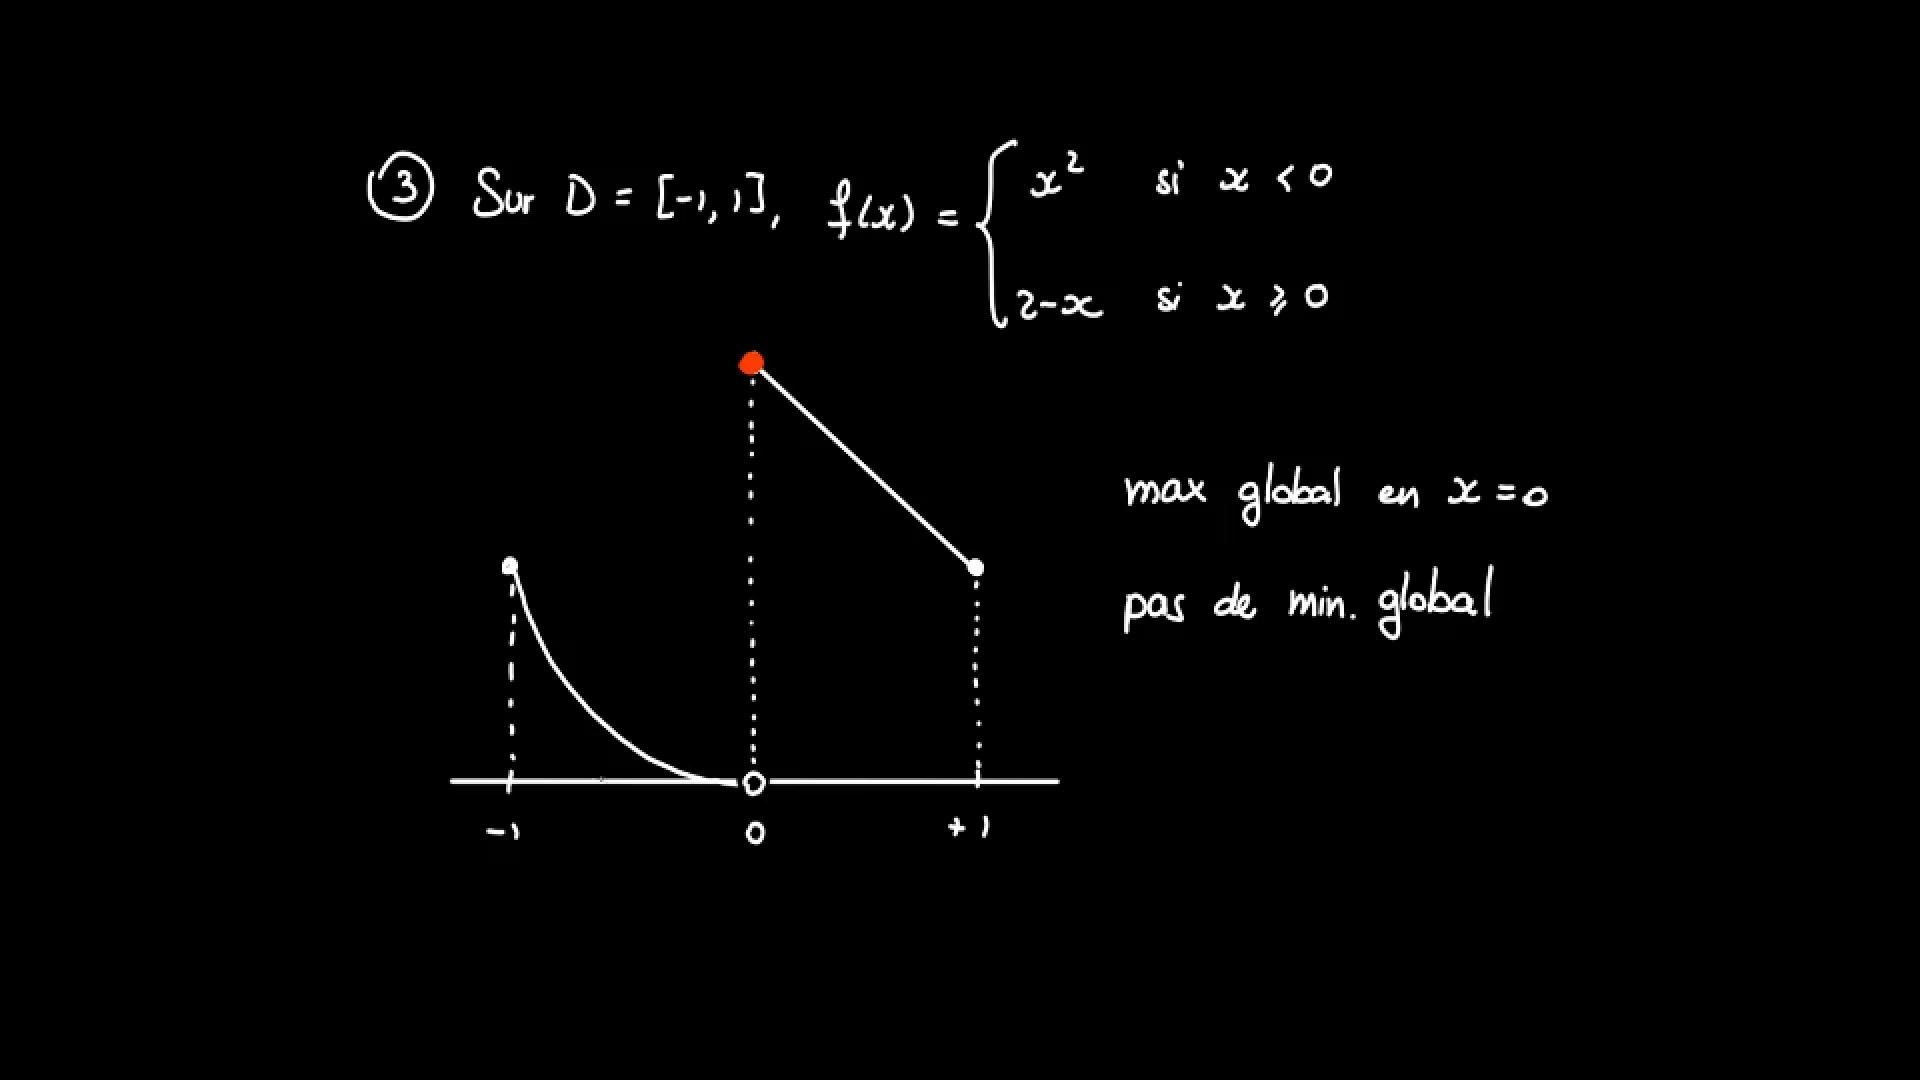 ③ Sur D = [-1, 1], f(x) = { x² si x < 0
2-x si x ⩾ 0
max global en x = 0
pas de min. global
-1 0 +1